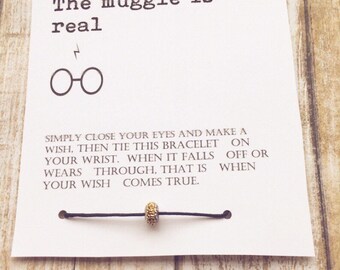 The muggle is
real
SIMPLY CLOSE YOUR EYES AND MAKE A
WISH, THEN TIE THIS BRACELET ON
YOUR WRIST. WHEN IT FALLS OFF OR
WEARS THROUGH, THAT IS WHEN
YOUR WISH COMES TRUE.